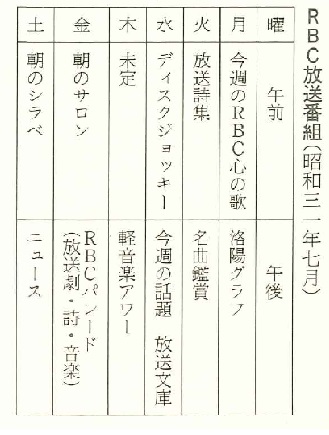 RBC放送番組(昭和三一年七月)
曜 午前 午後
月 今週のRBC心の歌 洛陽グラフ
火 放送詩集 名曲鑑賞
水 ディスクジョッキー 今週の話題 放送文庫
木 未定 軽音楽アワー
金 朝のサロン RBCパンード
(放送劇・詩・音楽)
土 朝のシラベ ニュース